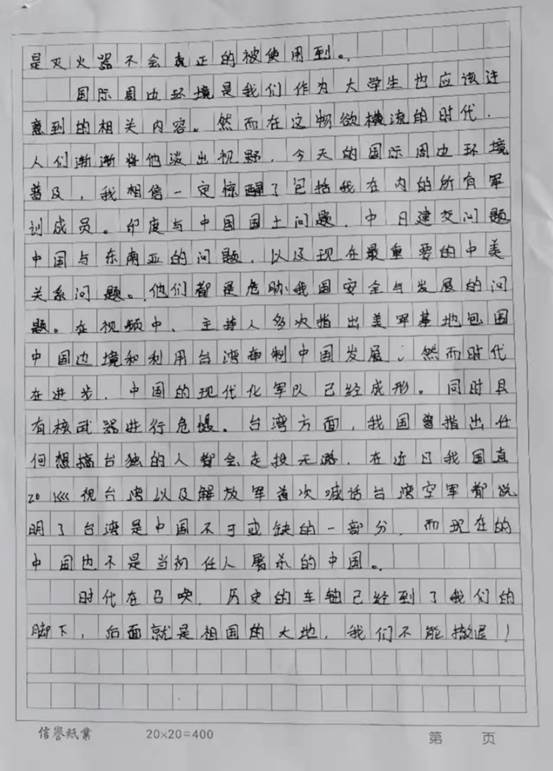 是灭火器不会真正的被使用到。
国际周边环境是我们作为大学生也应该注
意到的相关内容。然而在这物欲横流的时代，
人们渐渐将他淡出视野，今天的国际周边环境
普及，我相信一定惊醒了包括我在内的所有军
训成员。印度与中国国土问题，中日建交问题
中国与东南亚的问题，以及现在最重要的中美
关系问题。他们都是危胁我国安全与发展的问
题。在视频中，主持人多次指出美军基地包围
中国边境和利用台湾牵制中国发展，然而时代
在进步，中国的现代化军队已经成形。同时具
有核武器进行危慑。台湾方面，我国曾指出任
何想搞台独的人都会走投无路，在近日我国直
20 视台湾以及解放军首次喊话台湾空军都说
明了台湾是中国不可或缺的一部分，而现在的
中国也不是当初任人屠杀的中国。
时代在召唤，历史的车轴已经到了我们的
脚下，后面就是祖国的大地，我们不能撤退！
信誉纸业 20×20=400 第 页